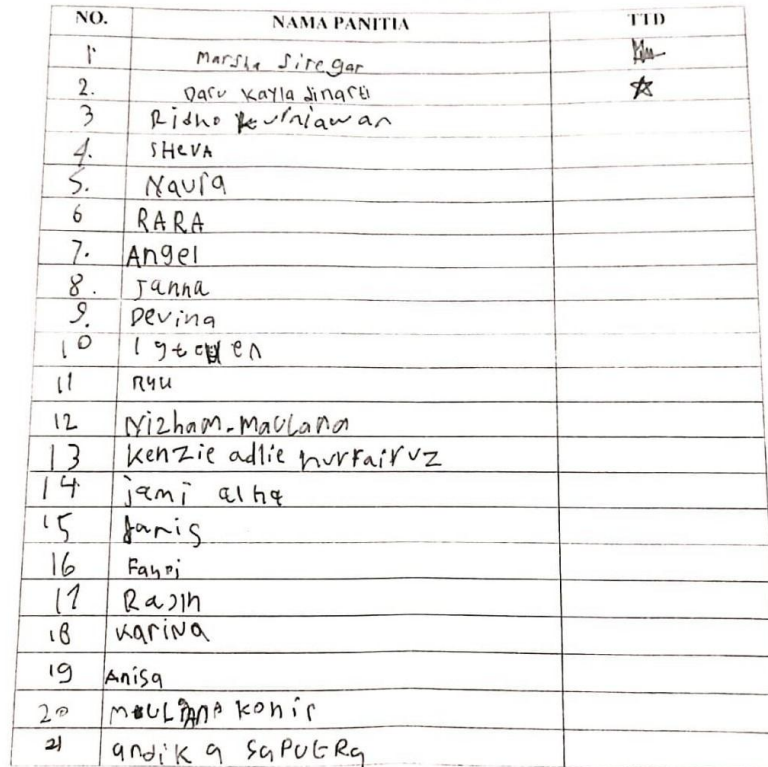 NO. NAMA PANITIA TTD
1. Marsha Siregar
2. Daru Kayla Sinarti
3 Ridho Kurniawan
4. SHEVA
5. Naura
6 RARA
7. Angel
8. Janna
9. Devina
10
11 RYU
12 Nizham-Maulana
13 Kenzie adlie nurfairuz
14 jami alha
15 Janis
16
17
18 KARINA
19 Anisa
20 MAULANA Kohir
21 andika SAPUtRa